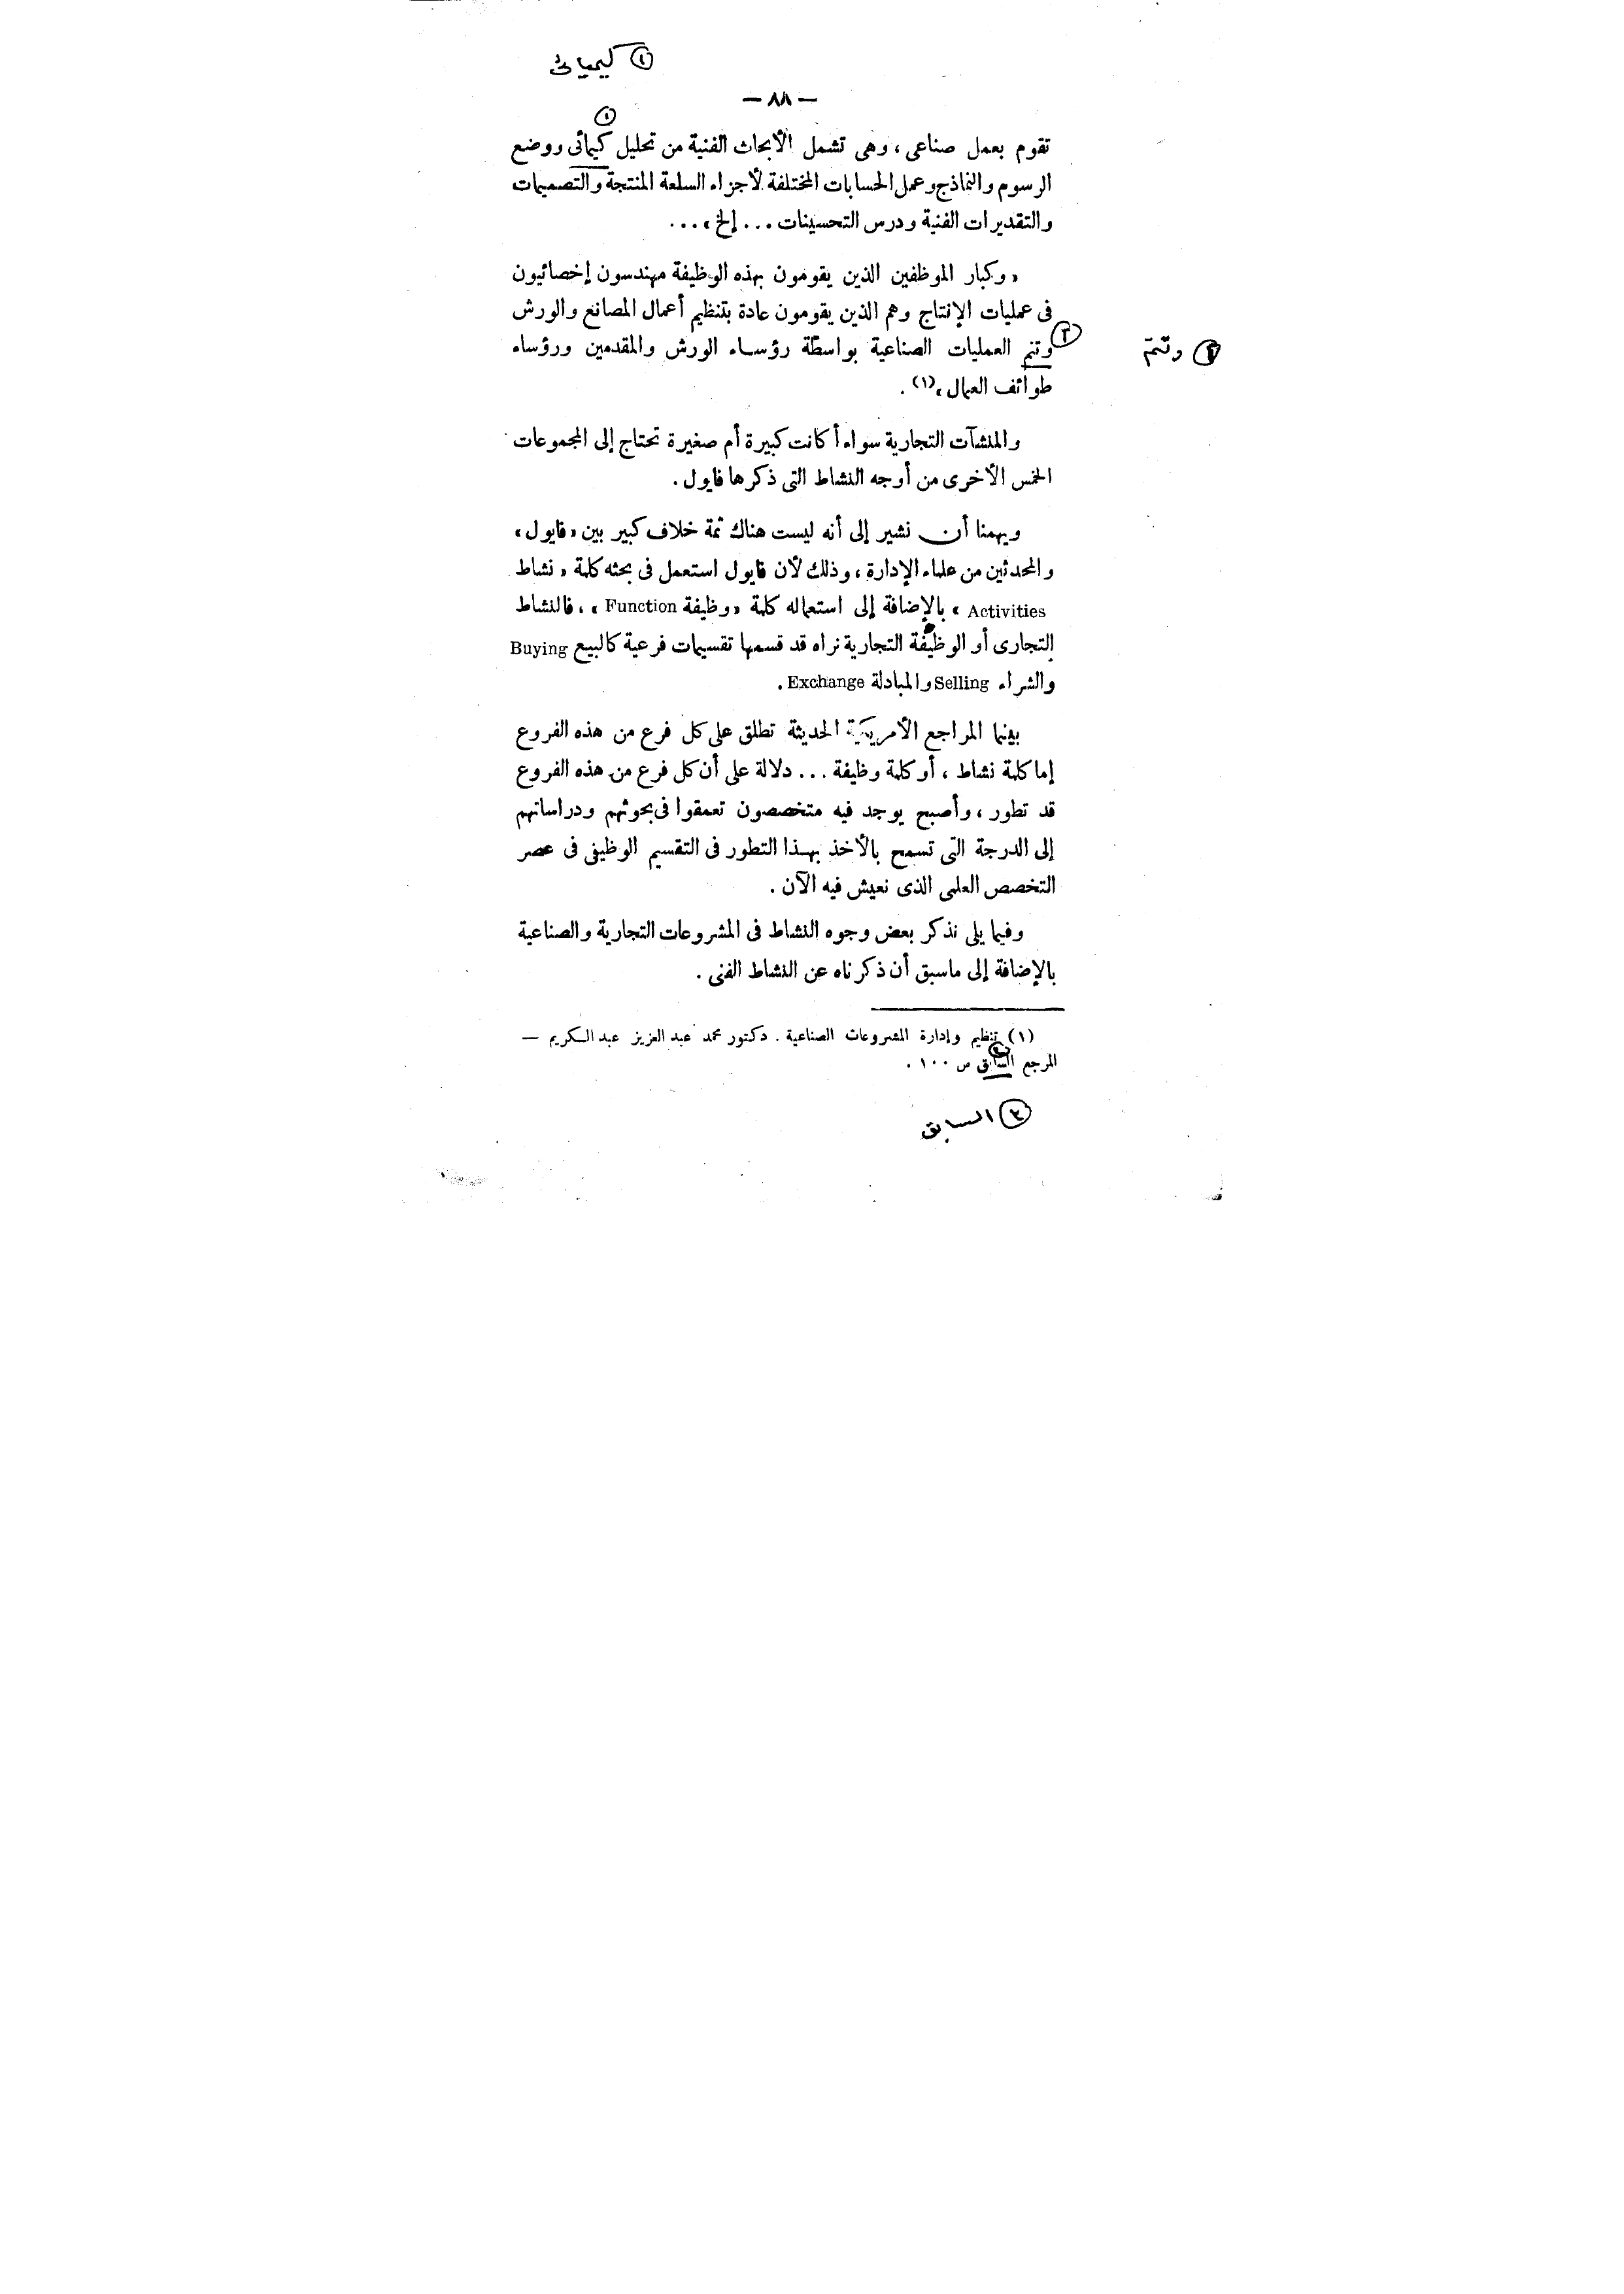 ① كيميائى
— ٨٨ —
①
تقوم بعمل صناعى ، وهى تشمل الأبحاث الفنية من تحليل كيمائى ووضع
الرسوم والنماذج وعمل الحسابات المختلفة لأجزاء السلعة المنتجة والتصميمات
والتقديرات الفنية ودرس التحسينات ... إلخ » ...
« وكبار الموظفين الذين يقومون بهذه الوظيفة مهندسون إخصائيون
فى عمليات الإنتاج وهم الذين يقومون عادة بتنظيم أعمال المصانع والورش
② وتنم العمليات الصناعية بواسطة رؤساء الورش والمقدمين ورؤساء
② وتتم
طوائف العمال »(١) .
والمنشآت التجارية سواء أكانت كبيرة أم صغيرة تحتاج إلى المجموعات
الخمس الأخرى من أوجه النشاط التى ذكرها فايول .
ويهمنا أن نشير إلى أنه ليست هناك ثمة خلاف كبير بين « فايول »
والمحدثين من علماء الإدارة ، وذلك لأن فايول استعمل فى بحثه كلمة « نشاط
Activities » بالإضافة إلى استعماله كلمة « وظيفة Function » ، فالنشاط
التجارى أو الوظيفة التجارية نراه قد قسمها تقسيمات فرعية كالبيع Buying
والشراء Selling والمبادلة Exchange .
بينما المراجع الأمريكية الحديثة تطلق على كل فرع من هذه الفروع
إما كلمة نشاط ، أو كلمة وظيفة ... دلالة على أن كل فرع من هذه الفروع
قد تطور ، وأصبح يوجد فيه متخصصون تعمقوا فى بحوثهم ودراساتهم
إلى الدرجة التى تسمح بالأخذ بهذا التطور فى التقسيم الوظيفى فى عصر
التخصص العلمى الذى نعيش فيه الآن .
وفيما يلى نذكر بعض وجوه النشاط فى المشروعات التجارية والصناعية
بالإضافة إلى ماسبق أن ذكرناه عن النشاط الفنى .
(١) تنظيم وإدارة المشروعات الصناعية . دكتور محمد عبد العزيز عبد الكريم —
المرجع السابق ص ١٠٠ .
③ السابق